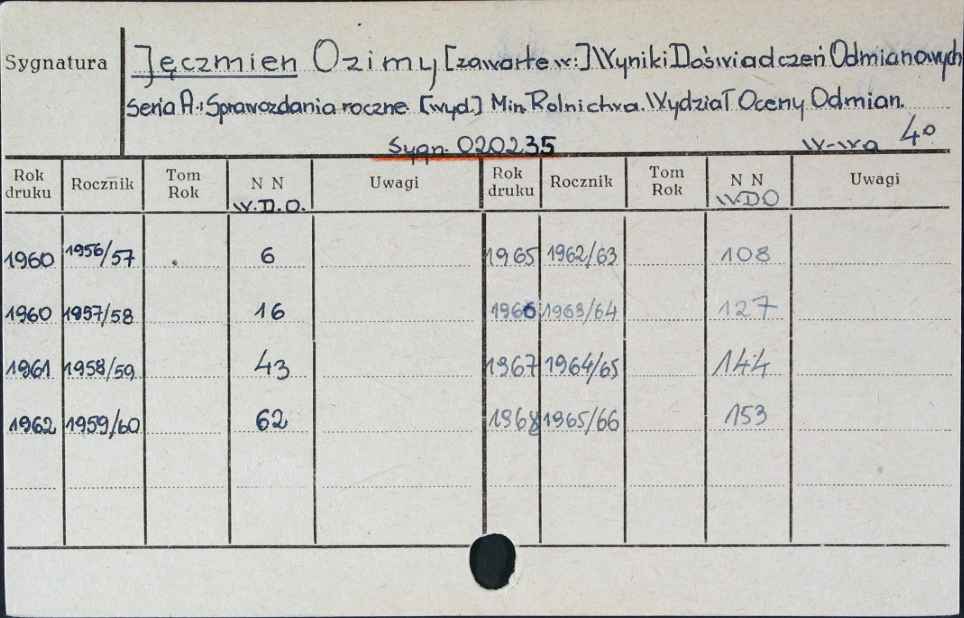 Sygnatura
Jęczmien Ozimy [zawarte w:] Wyniki Doświadczeń Odmianowych
Seria A: Sprawozdania roczne. [wyd.] Min. Rolnictwa. Wydział Oceny Odmian.
Sygn. 020235 W-wa 4°
Rok druku Rocznik Tom Rok N N W.D.O. Uwagi Rok druku Rocznik Tom Rok N N W.DO Uwagi
1960 1956/57 6 1965 1962/63 108
1960 1957/58 16 1966 1963/64 127
1961 1958/59 43 1967 1964/65 144
1962 1959/60 62 1968 1965/66 153